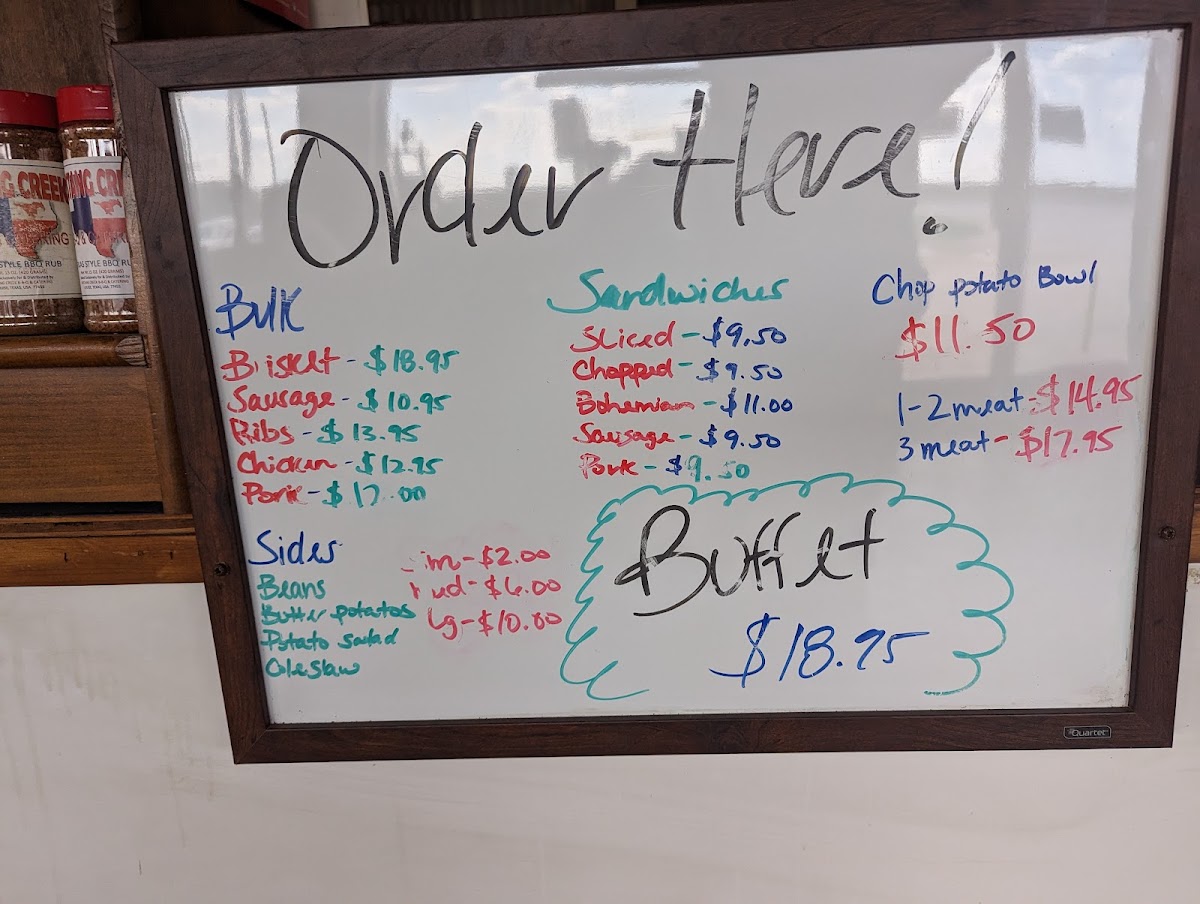 Order Here!
Bulk
Brisket - $18.95
Sausage - $10.95
Ribs - $13.95
Chicken - $12.95
Pork - $17.00
Sides
Beans
Butter potatos
Potato salad
Coleslaw
m - $2.00
ed - $6.00
lg - $10.00
Sandwiches
Sliced - $9.50
Chopped - $9.50
Bohemian - $11.00
Sausage - $9.50
Pork - $9.50
Chop potato Bowl
$11.50
1-2 meat - $14.95
3 meat - $17.95
Buffet
$18.95
Quartet
CREEK
STYLE BBQ RUB
STYLE BBQ RUB